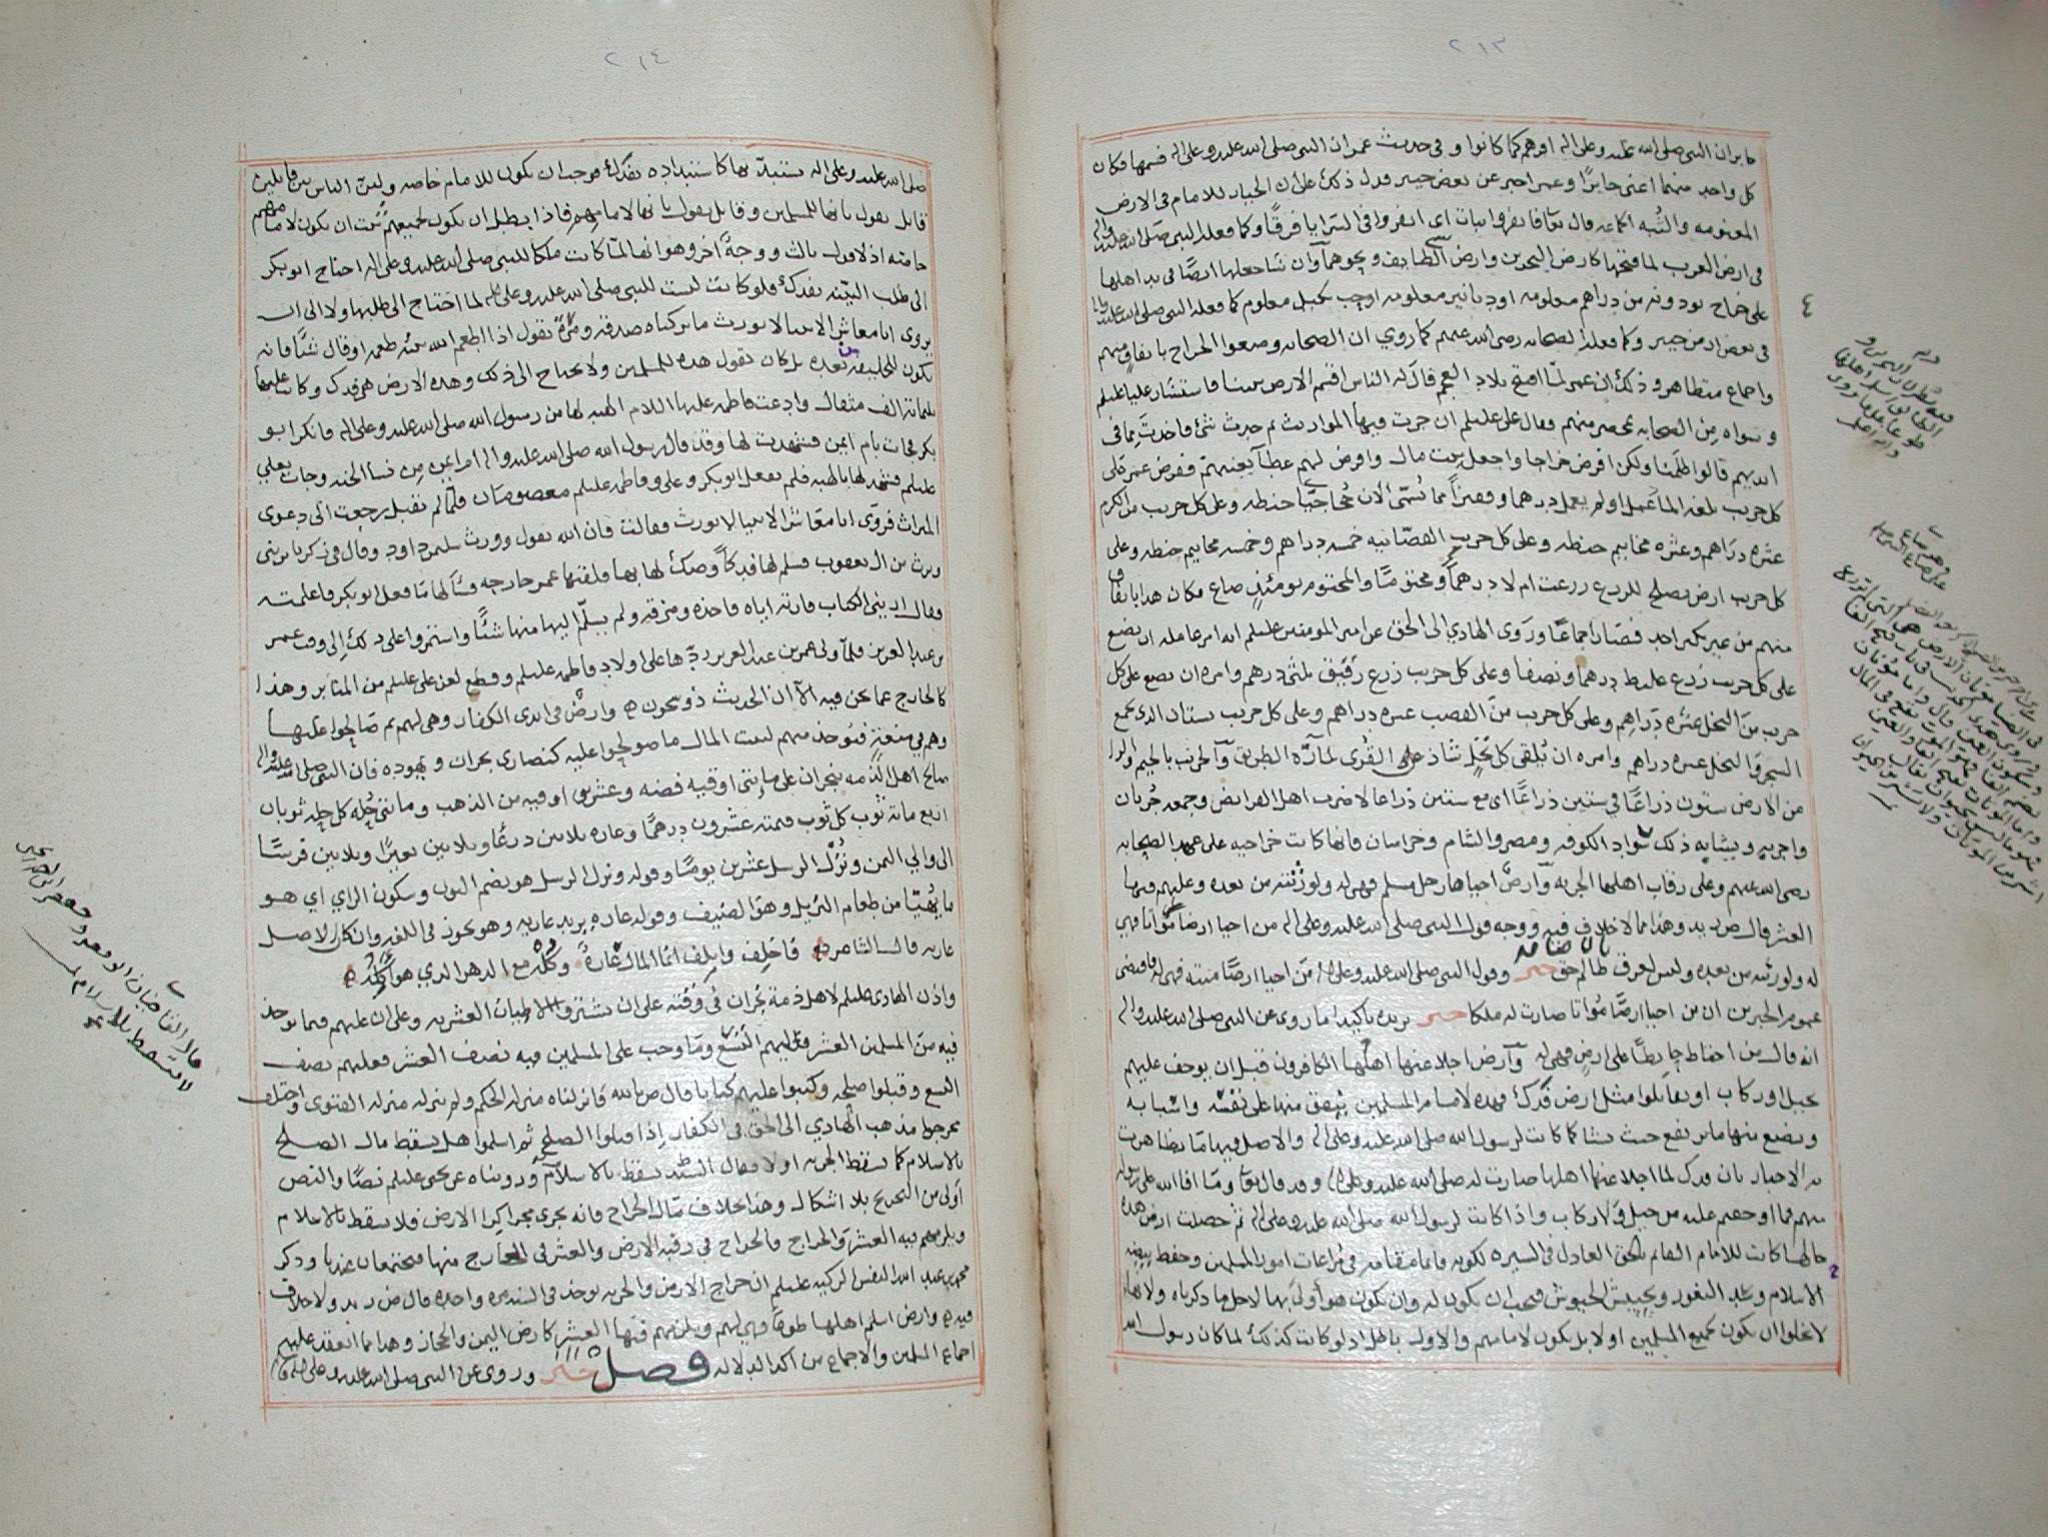 ٢١٣
جابر ان النبي صلى الله عليه وعلى اله اقرهم كما كانوا وفي حديث عمر ان النبي صلى الله عليه وعلى اله قسمها فكان
كل واحد منهما اعني جابرًا وعمر اخبر عن بعض خيبر فدل ذلك على ان الخيار للامام في الارض
المغنومه والثُبه الجماعه قال تعا فانفروا ثبات اي انفروا في السرايا فرقًا وكما فعله النبي صلى الله عليه واله
في ارض العرب لما فتحها كارض البحرين وارض الطايف ونحوهما وان شا جعلها ايضًا في يد اهلها
على خراج يودونه من دراهم معلومه او دنانير معلومه او حب بكيل معلوم كما فعله النبي صلى الله عليه
في بعض ارض خيبر وكما فعله الصحابه رضي الله عنهم كما روي ان الصحابه وضعوا الخراج باتفاق منهم
واجماع متظاهر وذلك ان عمر لمّا افتتح بلاد العجم قال له الناس اقسم الارض بيننا فاستشار عليا عليلم
وسواه من الصحابه بمحضر منهم فقال علي عليلم ان جرت فيها المواريث ثم حدث شئ فاخذت مما في
ايديهم قالوا ظلمنا ولكن افرض خراجا واجعل بيت مال وافرض لهم عطآ يغنيهم ففرض عمر على
كل جريب بلغه الما عمل او لم يعمل درهما وقفيزًا مما تُسمّى الان مخاجيّا حنطه وعلى كل جريب من الكرم
عشره دراهم وعشره مخاتيم حنطه وعلى كل جريب القصّابيه خمسه دراهم وخمسه مخاتيم حنطه وعلى
كل جريب ارض تصلح للزرع زرعت ام لا درهماً ومختومًا والمختوم يومئذٍ صاع فكان هذا باتفاق
منهم من غير نكير احد فصار اجماعًا وروى الهادي الى الحق عن امير المومنين عليلم انه امر عامله ان يضع
على كل جريب زرع غليظ درهما ونصفا وعلى كل جريب زرع رقيق ثلثي درهم وامره ان يضع على كل
جريب من النخل عشره دراهم وعلى كل جريب من القصب عشره دراهم وعلى كل جريب بستان الذي يجمع
الشجر والنخل عشره دراهم وامره ان يُلقي كل نخلٍ شاذ على القُرى لمارّه الطريق والجريب بالجيم والرا
من الارض ستون ذراعًا في ستين ذراعًا اي مع ستين ذراعا لا ضرب اهل الفرايض وجمعه جُربان
واجربه ويشابه ذلك سواد الكوفه ومصر والشام وخراسان فانها كانت خراجيه على عهد الصحابه
رضي الله عنهم وعلى رقاب اهلها الجزيه وارضٌ احياها رجل مسلم فهي له ولورثته من بعده وعليهم فيها
العشر قال ص زيد وهذا مما لاخلاف فيه ووجه قول النبي صلى الله عليه وعلى اله من احيا ارضا مَواتًا فهي
له ولورثته من بعده وليس لعرق ظالم حق خبر وقول النبي صلى الله عليه وعلى اله من احيا ارضًا ميته فهي له فاقتضى
عموم الخبرين ان من احيا ارضًا مَواتا صارت له ملكا خبر يزيده تاكيدا ما روي عن النبي صلى الله عليه واله
انه قال من احاط حايطًا على ارض فهي له وارض اجلا عنها اهلها الكافرون قبل ان يوجف عليهم
بخيل او ركاب او يقاتلوا مثل ارض فَدك فهذه لامام المسلمين ينفق منها على نفسه واسبابه
ويضع منها ما يرتفع حيث يشا كما كانت لرسول الله صلى الله عليه وعلى اله والاصل فيها ما تظاهرت
به الاخبار بان فدك لما اجلا عنها اهلها صارت له صلى الله عليه وعلى اله وقد قال تعا ومَا افا الله على رسوله
منهم فما اوجفتم عليه من خيل ولا ركاب واذا كانت لرسول الله صلى الله عليه وعلى اله ثم حصلت ارض هذه
حالها كانت للامام القايم بالحق العادل في السيره لكونه قايما مقامه في مراعات امور المسلمين وحفظ بيضه
الاسلام وسد الثغور وتجييش الجيوش فيجب ان يكون له وان يكون هو أولى بها لاجل ما ذكرناه ولانها
لا يخلوا ان يكون لجميع المسلمين او لا بل يكون لامامهم والاول باطل اذ لو كانت كذلك لما كان رسول الله
٢١٤
صلى الله عليه وعلى اله يستبدّ بها كاستبداده بفدك فوجب ان يكون للامام خاصه وليس الناس بين قايلين
قايل يقول بانها للمسلمين وقايل يقول بانها لامامهم فاذا بطل ان يكون لجميعهم ثبت ان يكون لامامهم
خاصه اذ لا قول ثالث ووجهٌ اخر وهو انها لمّا كانت ملكا للنبي صلى الله عليه وعلى اله احتاج ابو بكر
الى طلب البيّنه بفدك فلو كانت ليست للنبي صلى الله عليه وعلى اله لما احتاج الى طلبها ولا الى ان
يروي انا معاشر الانبيا لا نورث ما تركناه صدقه ومرّةً يقول اذا اطعم الله نبيّه طعمه او قال شيًّا فانه
يكون للخليفه من بعده بل كان يقول هذه للمسلمين ولا يحتاج الى ذلك وهذه الارض هي فدك وكانت غلتها
ثلثمائة الف مثقال وادعت فاطمه عليها السلام الهبه لها من رسول الله صلى الله عليه وعلى اله فانكر ابو
بكر فجات بام ايمن فشهدت لها وقد قال رسول الله صلى الله عليه واله ام ايمن من نسا الجنه وجات بعلي
عليلم فشهد لها بالهبه فلم يقبل ابو بكر وعلي وفاطمه عليلم معصومان فلمّا لم تقبل رجعت الى دعوى
الميراث فروى انا معاشر الانبيا لا نورث فقالت فان الله يقول وورث سليمن داود وقال في زكريا يرثني
ويرث من ال يعقوب فسلم لها فدكاً وصكّ لها بها فلقيها عمر خارجه فسألها مَا فعل ابو بكر فاعلمته
فقال اريني الكتاب فارته اياه فاخذه ومزقه ولم يسلّم اليها منها شئًا واستمروا على ذلك الى وقت عمر
بن عبد العزيز فلما ولي عمر بن عبد العزيز ردّها على اولاد فاطمه عليلم وقطع لعن علي عليلم من المنابر وهذا
كالخارج عما نحن فيه الا ان الحديث ذو شجون وارضٌ في ايدي الكفار وهي لهم ثم صَالحوا عليها
وهم في منعةٍ فيوخذ منهم لبيت المال ما صولحوا عليه كنصارى نجران ويهوده فان النبي صلى الله عليه واله
صالح اهل الذمه بنجران على مايتي اوقيه فضه وعشرين اوقيه من الذهب ومايتي حُله كل حله ثوبان
اربع مائة ثوب كل ثوب قيمته عشرون درهمًا وعاره ثلاثين درعًا وثلاثين بعيرًا وثلاثين فرسًا
الى والي اليمن ونُزُل الرسل عشرين يومًا وقوله ونزل الرسل هو بضم النون وسكون الزاي اي هو
ما يُهيّا من طعام النزيل وهو الضيف وقوله عاره يريد عاريه وهو يجوز في اللغه وان كان الاصل
عاريه قال الشاعر فاَخلِف وأتلِف انما المال عَارةٌ وكُلْه مع الدهر الذي هو آكِلُه
واذن الهادي عليلم لاهل ذمة نجران في وقته على ان يشتروا الاطيان العشريه وعلى ان عليهم فيما يوخذ
فيه من المسلمين العشر فعليهم التُسْع ومَا وجب على المسلمين فيه نصف العشر فعليهم نصف
التسع وقبلوا صلحه وكتبوا عليهم كتابا قال ص بالله فانزلناه منزله الحكم ولم ننزله منزله الفتوى واختلف
تخريج مذهب الهادي الى الحق في الكفار إذا قبلوا الصلح ثم اسلموا هل يسقط مال الصلح
بالاسلام كما يسقط الجزيه او لا فقال السيّد يسقط بالاسلام ورويناه عن يحيى عليلم نصًا والنص
أولى من التخريج بلا اشكال وهذا بخلاف مَال الخراج فانه يجري مجرا كِرا الارض فلا يسقط بالاسلام
ويلزمهم فيه العشر والخراج فالخراج في رقبه الارض والعشر في الخارج منها فيجتمعان عندنا وذكر
محمد بن عبد الله النفس الزكيه عليلم ان خراج الارض والجزيه يوخذ في السنه مره واحده قال ص زيد ولاخلاف
فيه وارض اسلم اهلها طوعًا فهي لهم ويلزمهم فيها العشر كارض اليمن والحجاز وهذا مما انعقد عليه
اجماع المسلمين والاجماع من اكد الدلاله فصل خبر وروي عن النبي صلى الله عليه وعلى اله